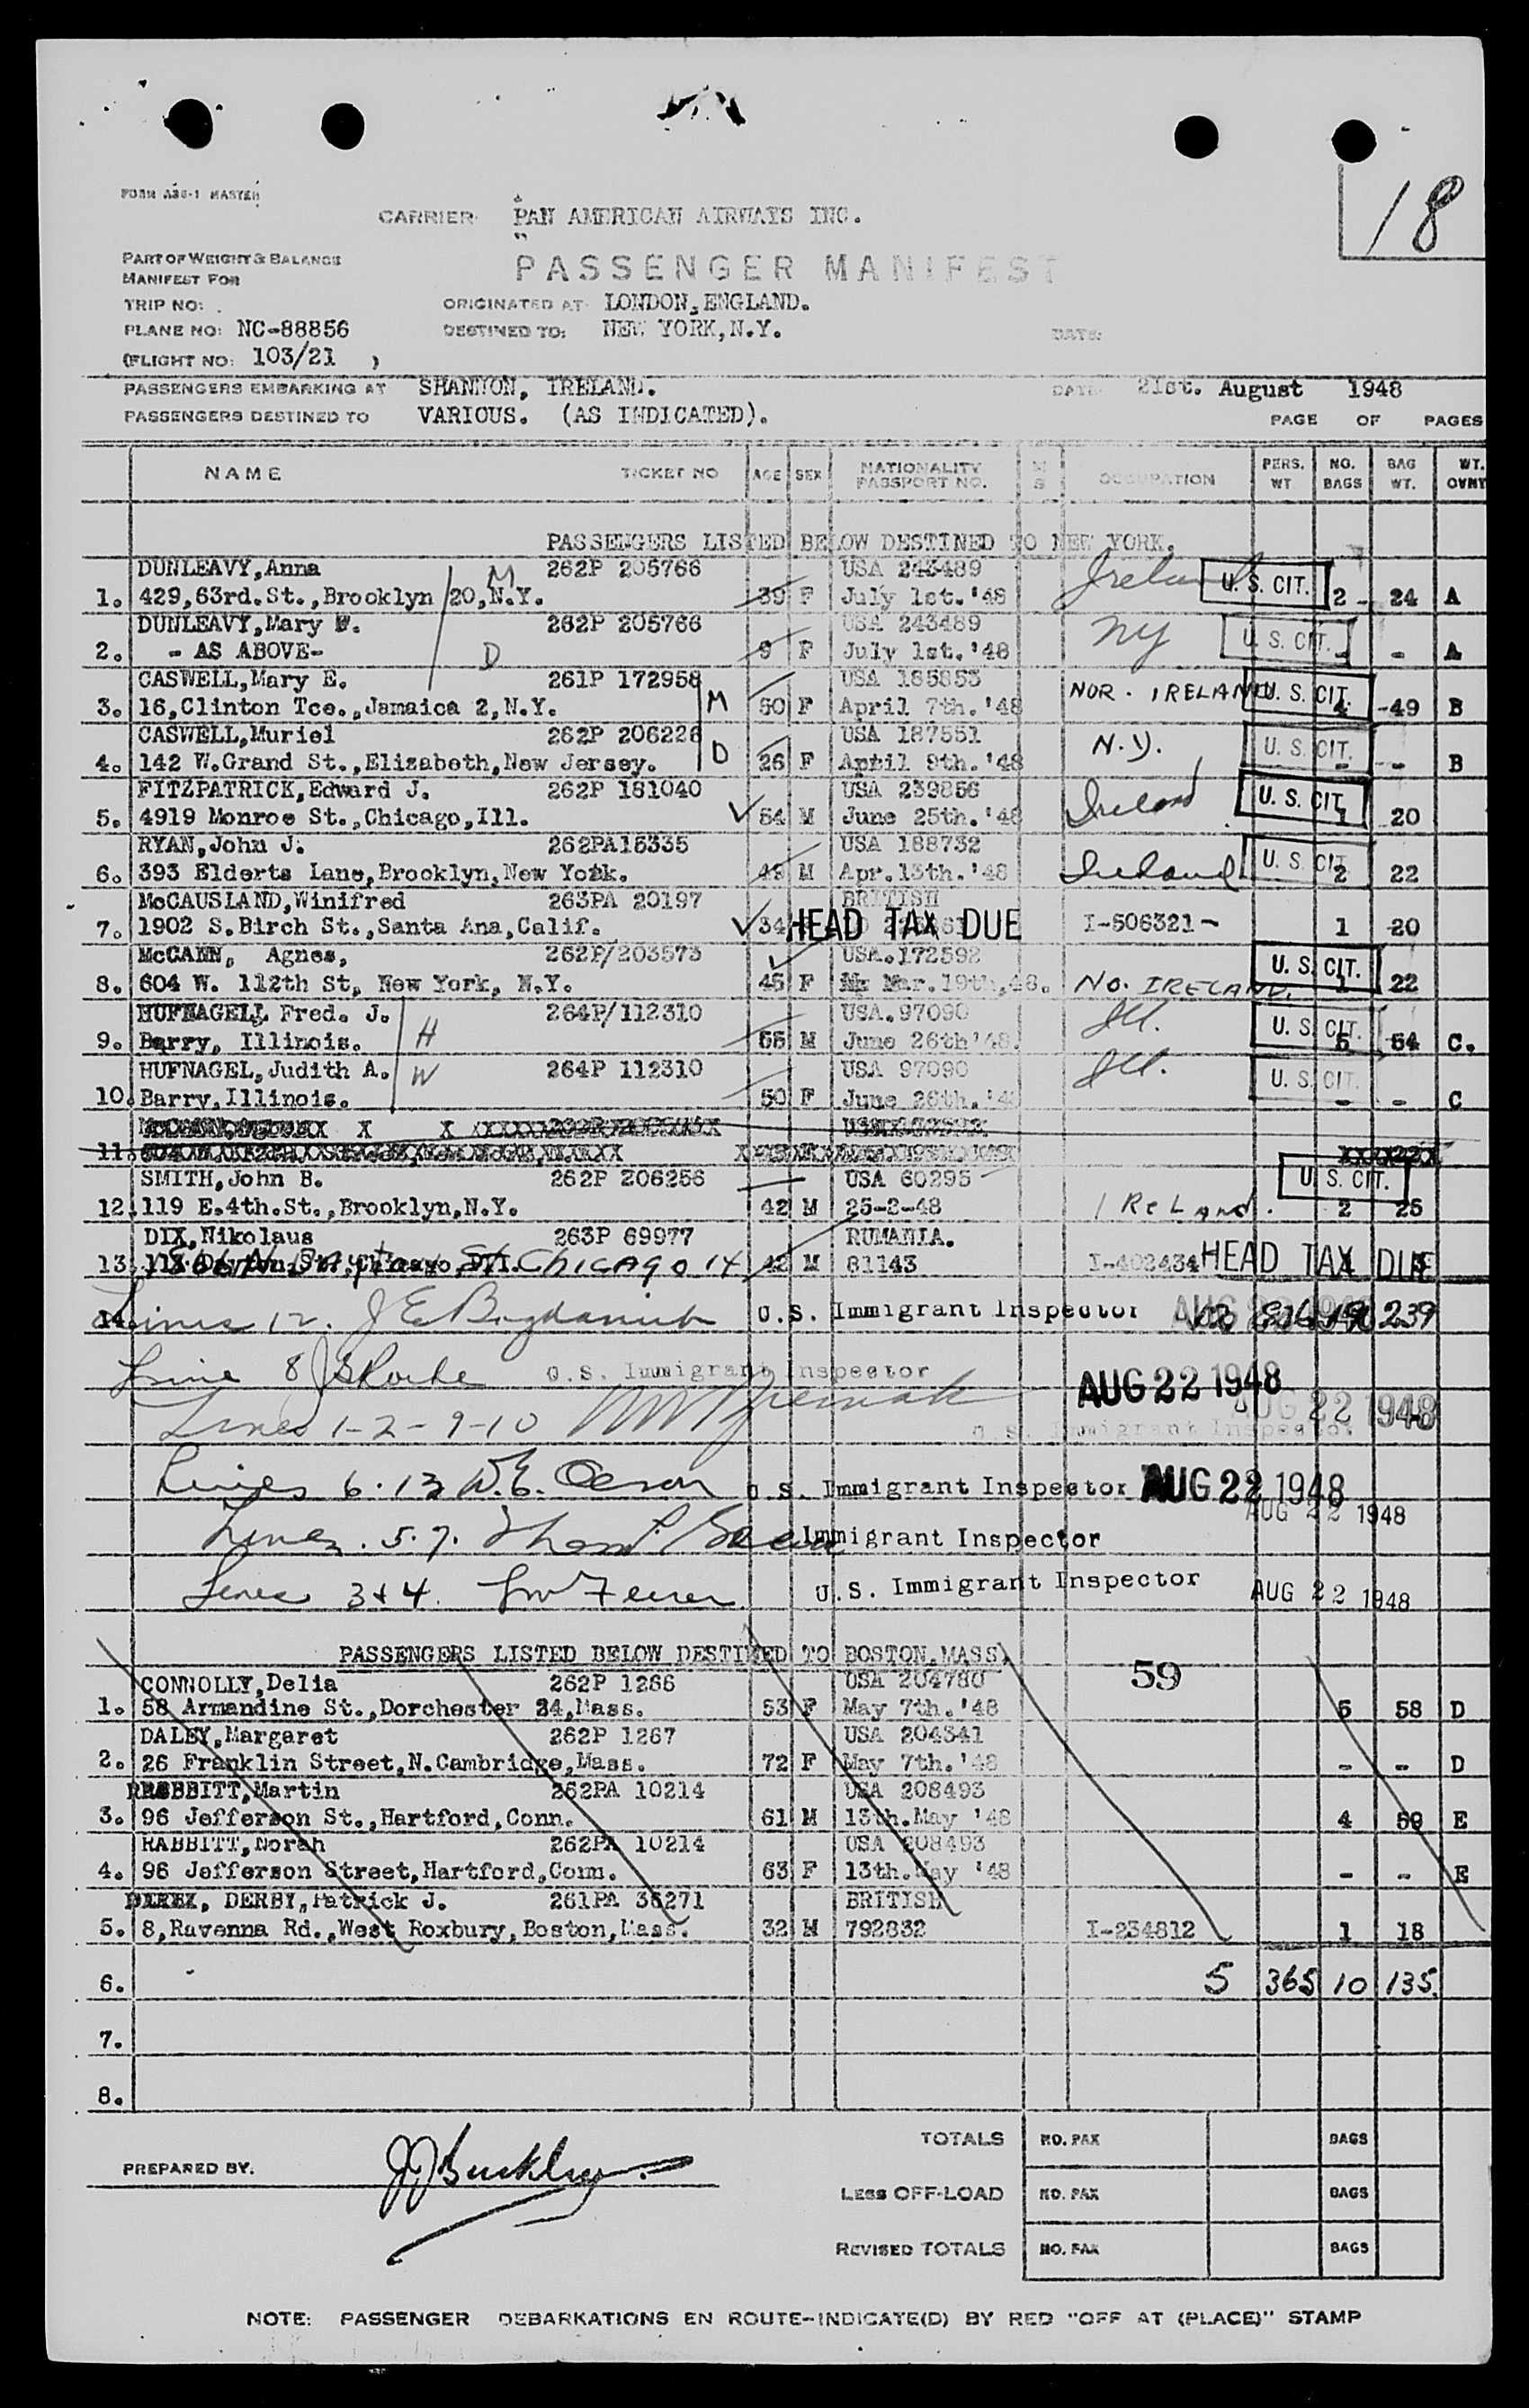 FORM A36-1 MASTER
18
CARRIER PAN AMERICAN AIRWAYS INC.
PART OF WEIGHT & BALANCE
MANIFEST FOR
PASSENGER MANIFEST
TRIP NO:
ORIGINATED AT LONDON, ENGLAND.
PLANE NO: NC-88856
DESTINED TO: NEW YORK, N.Y.
DATE:
(FLIGHT NO: 103/21 )
PASSENGERS EMBARKING AT SHANNON, IRELAND.
DATE 21st. August 1948
PASSENGERS DESTINED TO VARIOUS. (AS INDICATED).
PAGE OF PAGES
NAME TICKET NO AGE SEX NATIONALITY PASSPORT NO. M S OCCUPATION PERS. WT NO. BAGS BAG WT. WT. OVNT
PASSENGERS LISTED BELOW DESTINED TO NEW YORK.
DUNLEAVY, Anna M 262P 205766 USA 243489 Ireland U. S. CIT.
1. 429,63rd.St.,Brooklyn 20,N.Y. 39 F July 1st.'48 2 24 A
DUNLEAVY, Mary W. 262P 205766 USA 243489 NY U. S. CIT.
2. - AS ABOVE- D 9 F July 1st.'48 - - A
CASWELL, Mary E. 261P 172958 USA 185853 NOR. IRELAND U. S. CIT.
3. 16,Clinton Tce.,Jamaica 2,N.Y. M 50 F April 7th.'48 4 49 B
CASWELL, Muriel 262P 206226 USA 187551 N.Y. U. S. CIT.
4. 142 W.Grand St.,Elizabeth,New Jersey. D 26 F April 9th.'48 - - B
FITZPATRICK, Edward J. 262P 181040 USA 239856 Ireland U. S. CIT.
5. 4919 Monroe St.,Chicago,Ill. 54 M June 25th.'48 1 20
RYAN, John J. 262PA15335 USA 188732 Ireland U. S. CIT.
6. 393 Elderts Lane,Brooklyn,New York. 49 M Apr.13th.'48 2 22
McCAUSLAND, Winifred 263PA 20197 BRITISH
7. 1902 S.Birch St.,Santa Ana,Calif. 34 HEAD TAX DUE I-506321- 1 20
McCANN, Agnes, 262P/203573 USA.172592 U. S. CIT.
8. 604 W. 112th St, New York, N.Y. 45 F Mar.19th,48. NO. IRELAND. 1 22
HUFNAGELL Fred. J. 264P/112310 USA.97090 Ill. U. S. CIT.
9. Barry, Illinois. H 55 M June 26th'48. 5 54 C.
HUFNAGEL, Judith A. 264P 112310 USA 97090 Ill. U. S. CIT.
10. Barry,Illinois. W 50 F June 26th.'48 - - C
11.
SMITH, John B. 262P 206256 USA 60295 U. S. CIT.
12. 119 E.4th.St.,Brooklyn,N.Y. 42 M 25-2-48 IRELAND. 2 25
DIX, Nikolaus 263P 69977 RUMANIA.
13. CHICAGO 14 42 M 81143 I-402434 HEAD TAX DUE
14. Lines 12. U.S. Immigrant Inspector 239
Line 8 U.S. Immigrant Inspector AUG 22 1948
Lines 1-2-9-10 U.S. Immigrant Inspector AUG 22 1948
Lines 6.13 W.E. Olson U.S. Immigrant Inspector AUG 22 1948
Lines. 5.7. Immigrant Inspector AUG 22 1948
Lines 3+4. U.S. Immigrant Inspector AUG 22 1948
PASSENGERS LISTED BELOW DESTINED TO BOSTON,MASS.
59
CONNOLLY, Delia 262P 1266 USA 204780
1. 58 Armandine St.,Dorchester 24,Mass. 53 F May 7th.'48 5 58 D
DALEY, Margaret 262P 1267 USA 204341
2. 26 Franklin Street,N.Cambridge,Mass. 72 F May 7th.'48 - - D
RABBITT, Martin 262PA 10214 USA 208493
3. 96 Jefferson St.,Hartford,Conn. 61 M 13th.May '48 4 59 E
RABBITT, Norah 262PA 10214 USA 208493
4. 96 Jefferson Street,Hartford,Conn. 63 F 13th.May '48 - - E
DERBY, Patrick J. 261PA 36271 BRITISH
5. 8,Ravenna Rd.,West Roxbury,Boston,Mass. 32 M 792832 I-234812 1 18
6. 5 365 10 135
7.
8.
TOTALS NO. PAX BAGS
PREPARED BY. JJ Buckley
LESS OFF-LOAD NO. PAX BAGS
REVISED TOTALS NO. PAX BAGS
NOTE: PASSENGER DEBARKATIONS EN ROUTE-INDICATE(D) BY RED "OFF AT (PLACE)" STAMP